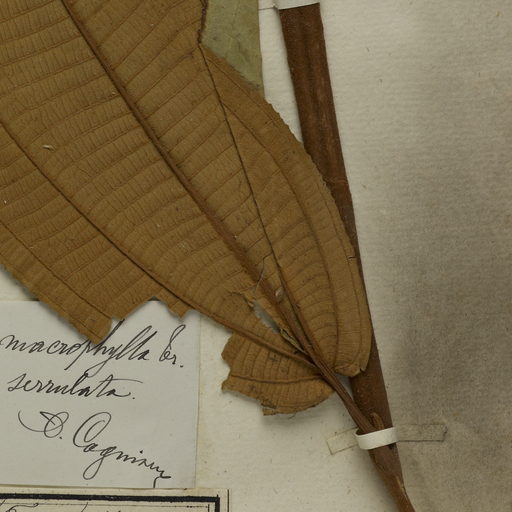 macrophylla Tr.
serrulata.
A. Cogniaux